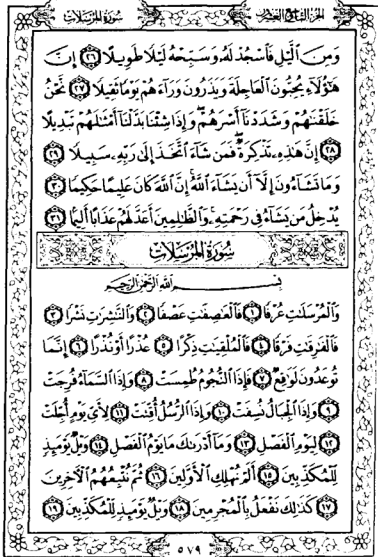 سورة المرسلات
الجزء التاسع والعشرون
وَمِنَ ٱلَّيۡلِ فَٱسۡجُدۡ لَهُۥ وَسَبِّحۡهُ لَيۡلٗا طَوِيلًا ٢٦ إِنَّ
هَٰٓؤُلَآءِ يُحِبُّونَ ٱلۡعَاجِلَةَ وَيَذَرُونَ وَرَآءَهُمۡ يَوۡمٗا ثَقِيلٗا ٢٧ نَّحۡنُ
خَلَقۡنَٰهُمۡ وَشَدَدۡنَآ أَسۡرَهُمۡۖ وَإِذَا شِئۡنَا بَدَّلۡنَآ أَمۡثَٰلَهُمۡ تَبۡدِيلًا
٢٨ إِنَّ هَٰذِهِۦ تَذۡكِرَةٞۖ فَمَن شَآءَ ٱتَّخَذَ إِلَىٰ رَبِّهِۦ سَبِيلٗا ٢٩
وَمَا تَشَآءُونَ إِلَّآ أَن يَشَآءَ ٱللَّهُۚ إِنَّ ٱللَّهَ كَانَ عَلِيمًا حَكِيمٗا ٣٠
يُدۡخِلُ مَن يَشَآءُ فِي رَحۡمَتِهِۦۚ وَٱلظَّٰلِمِينَ أَعَدَّ لَهُمۡ عَذَابًا أَلِيمَۢا ٣١
سورة المرسلات
بسم الله الرحمن الرحيم
وَٱلۡمُرۡسَلَٰتِ عُرۡفٗا ١ فَٱلۡعَٰصِفَٰتِ عَصۡفٗا ٢ وَٱلنَّٰشِرَٰتِ نَشۡرٗا ٣
فَٱلۡفَٰرِقَٰتِ فَرۡقٗا ٤ فَٱلۡمُلۡقِيَٰتِ ذِكۡرًا ٥ عُذۡرًا أَوۡ نُذۡرًا ٦ إِنَّمَا
تُوعَدُونَ لَوَٰقِعٞ ٧ فَإِذَا ٱلنُّجُومُ طُمِسَتۡ ٨ وَإِذَا ٱلسَّمَآءُ فُرِجَتۡ
٩ وَإِذَا ٱلۡجِبَالُ نُسِفَتۡ ١٠ وَإِذَا ٱلرُّسُلُ أُقِّتَتۡ ١١ لِأَيِّ يَوۡمٍ أُجِّلَتۡ
١٢ لِيَوۡمِ ٱلۡفَصۡلِ ١٣ وَمَآ أَدۡرَىٰكَ مَا يَوۡمُ ٱلۡفَصۡلِ ١٤ وَيۡلٞ يَوۡمَئِذٖ
لِّلۡمُكَذِّبِينَ ١٥ أَلَمۡ نُهۡلِكِ ٱلۡأَوَّلِينَ ١٦ ثُمَّ نُتۡبِعُهُمُ ٱلۡأٓخِرِينَ
١٧ كَذَٰلِكَ نَفۡعَلُ بِٱلۡمُجۡرِمِينَ ١٨ وَيۡلٞ يَوۡمَئِذٖ لِّلۡمُكَذِّبِينَ ١٩
٥٧٩